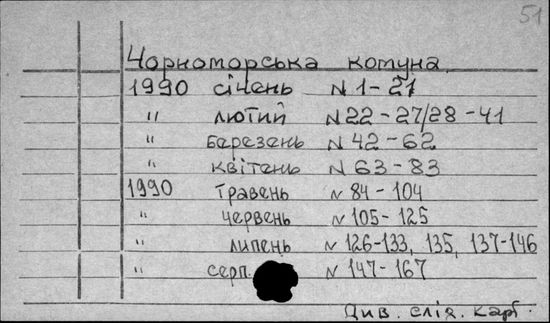 51
Чорноморська комуна
1990 січень N 1 - 21
" лютий N 22 - 27/28 - 41
" березень N 42 - 62
" квітень N 63 - 83
1990 травень N 84 - 104
" червень N 105 - 125
" липень N 126-133, 135, 137-146
" серп. N 147 - 167
Див. слід. карт.